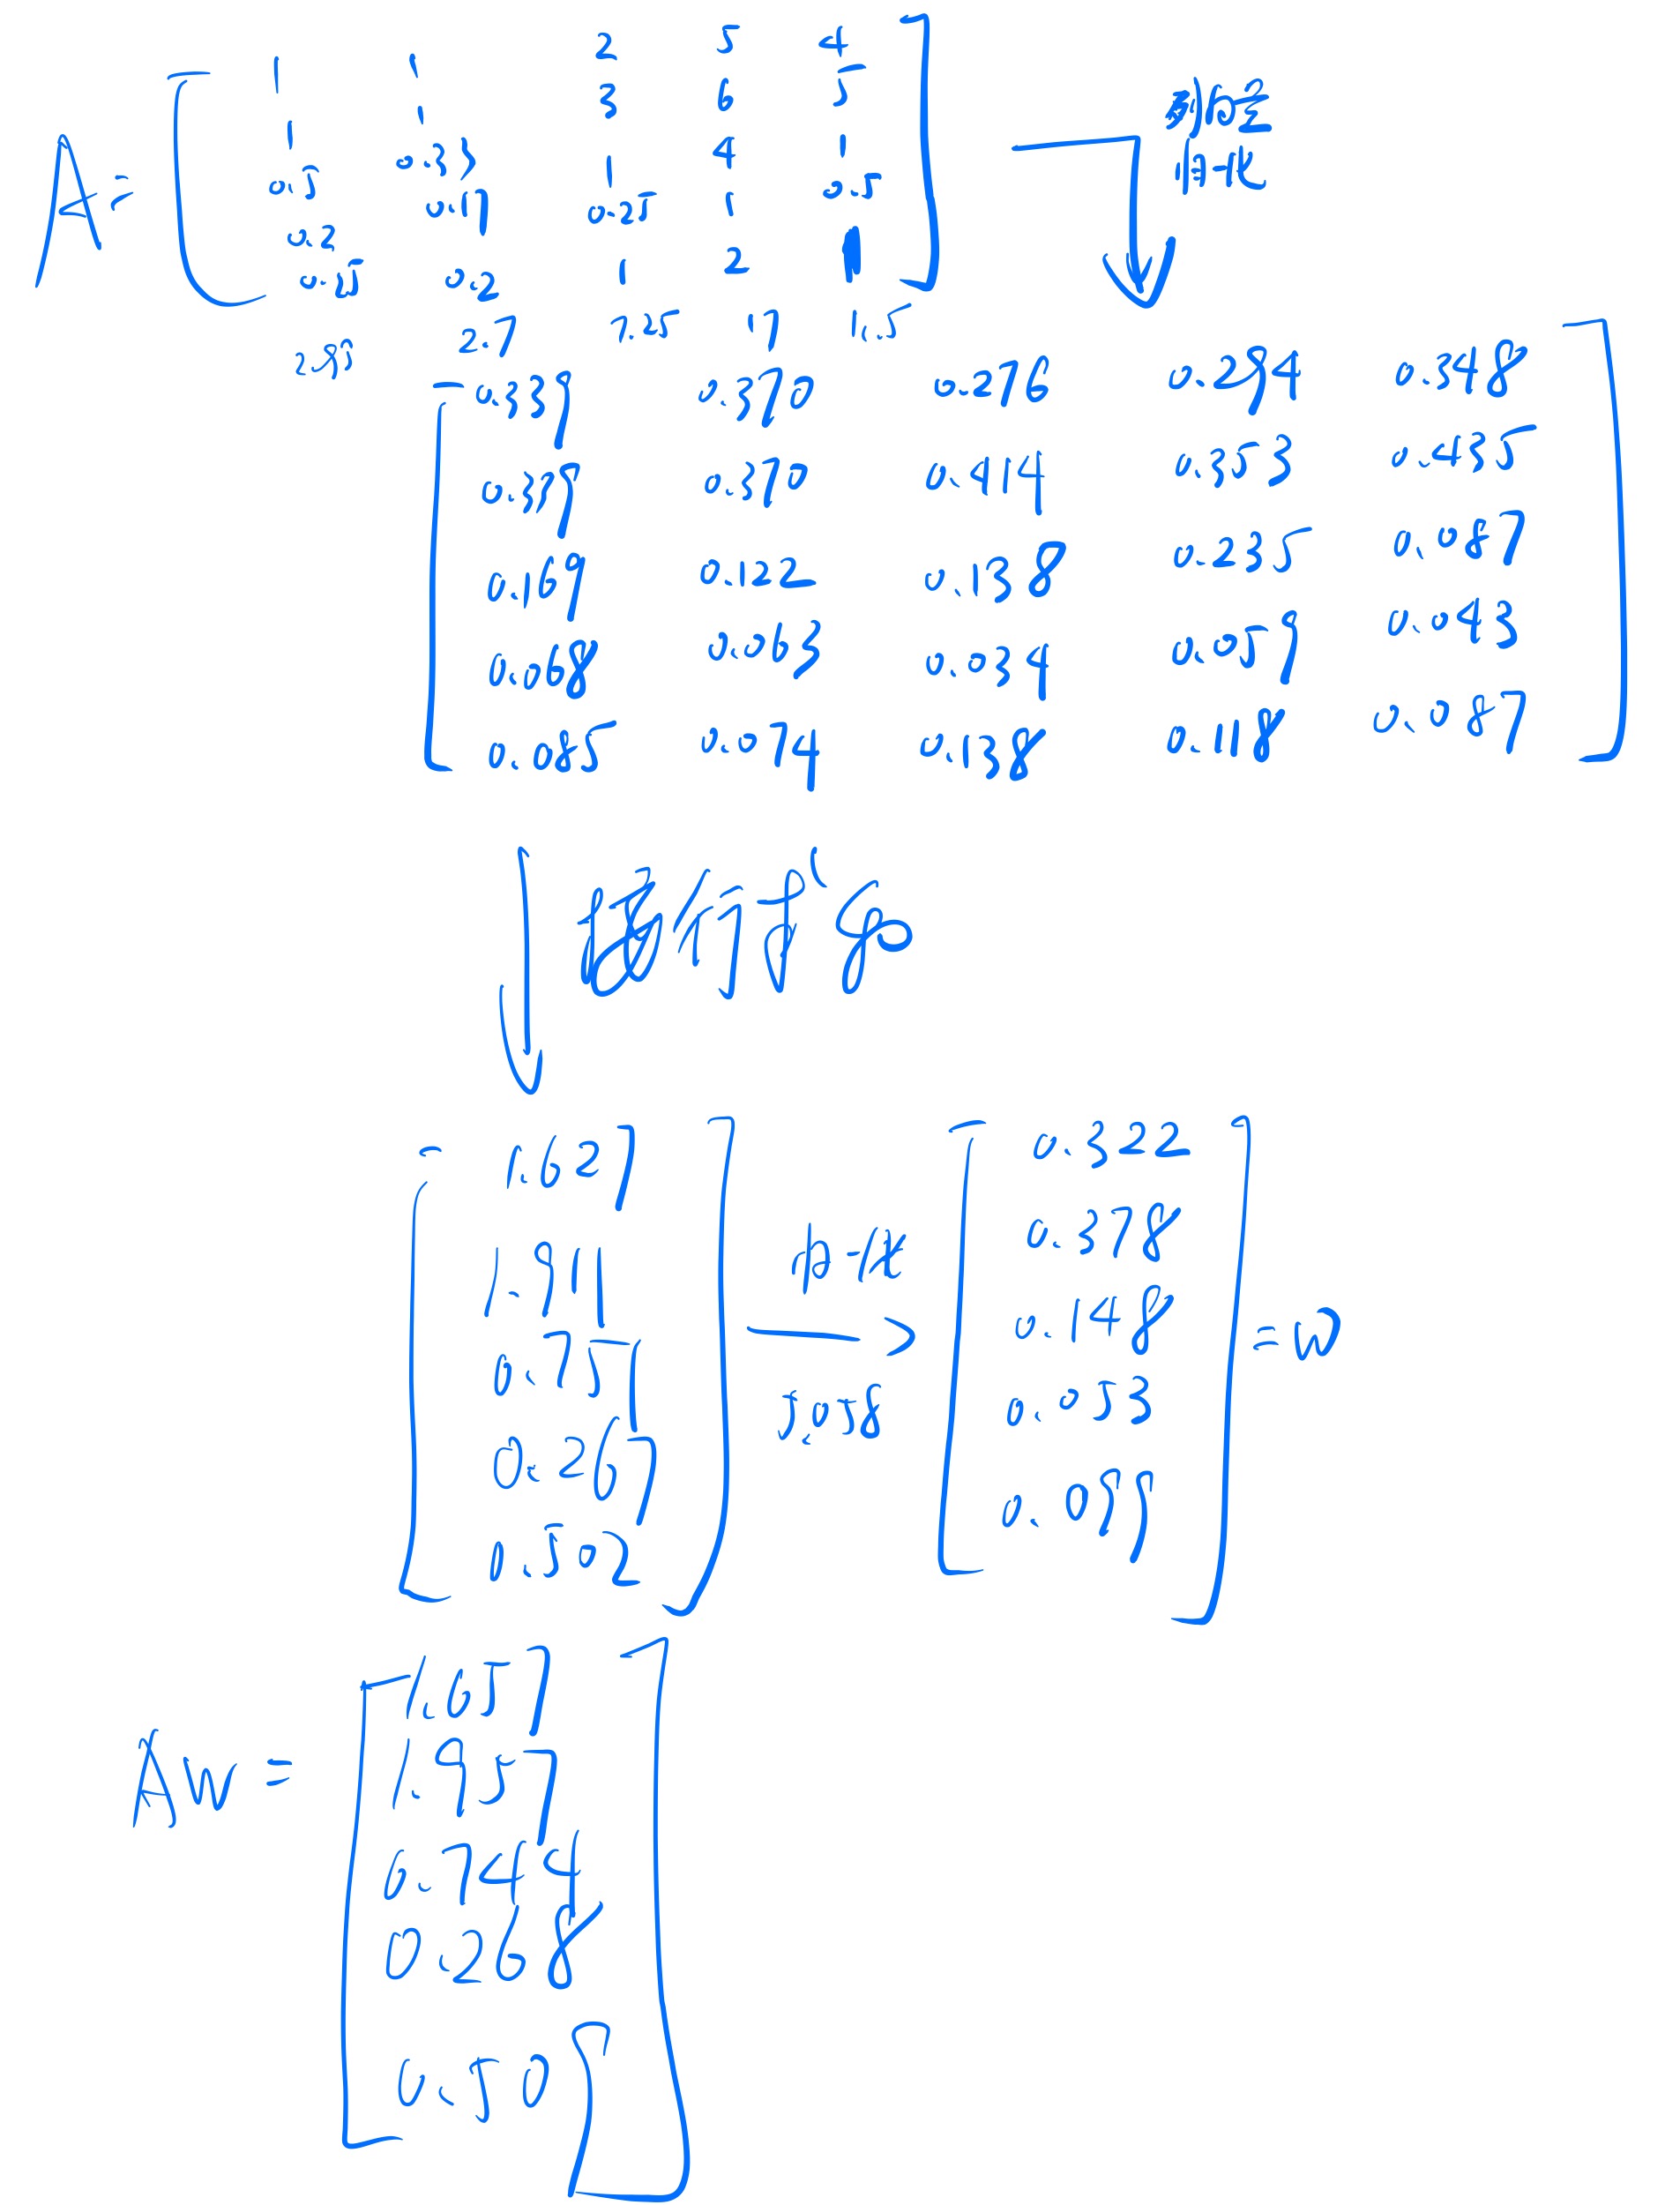 A = [ 1 1 2 5 4
1 1 3 6 5
0.5 0.33 1 4 1
0.2 0.17 0.25 1 0.5
0.25 0.2 1 2 1 ]
2.7 7.25 17 11.5
列向量
归一化
[ 0.339 0.370 0.276 0.294 0.348
0.339 0.370 0.414 0.353 0.435
0.169 0.122 0.138 0.235 0.087
0.068 0.063 0.034 0.059 0.043
0.085 0.074 0.138 0.118 0.087 ]
按行求和
[ 1.627
1.911
0.751
0.267
0.502 ]
归一化
5.058
[ 0.322
0.378
0.148
0.053
0.099 ] = w
Aw = [ 1.657
1.957
0.744
0.268
0.509 ]